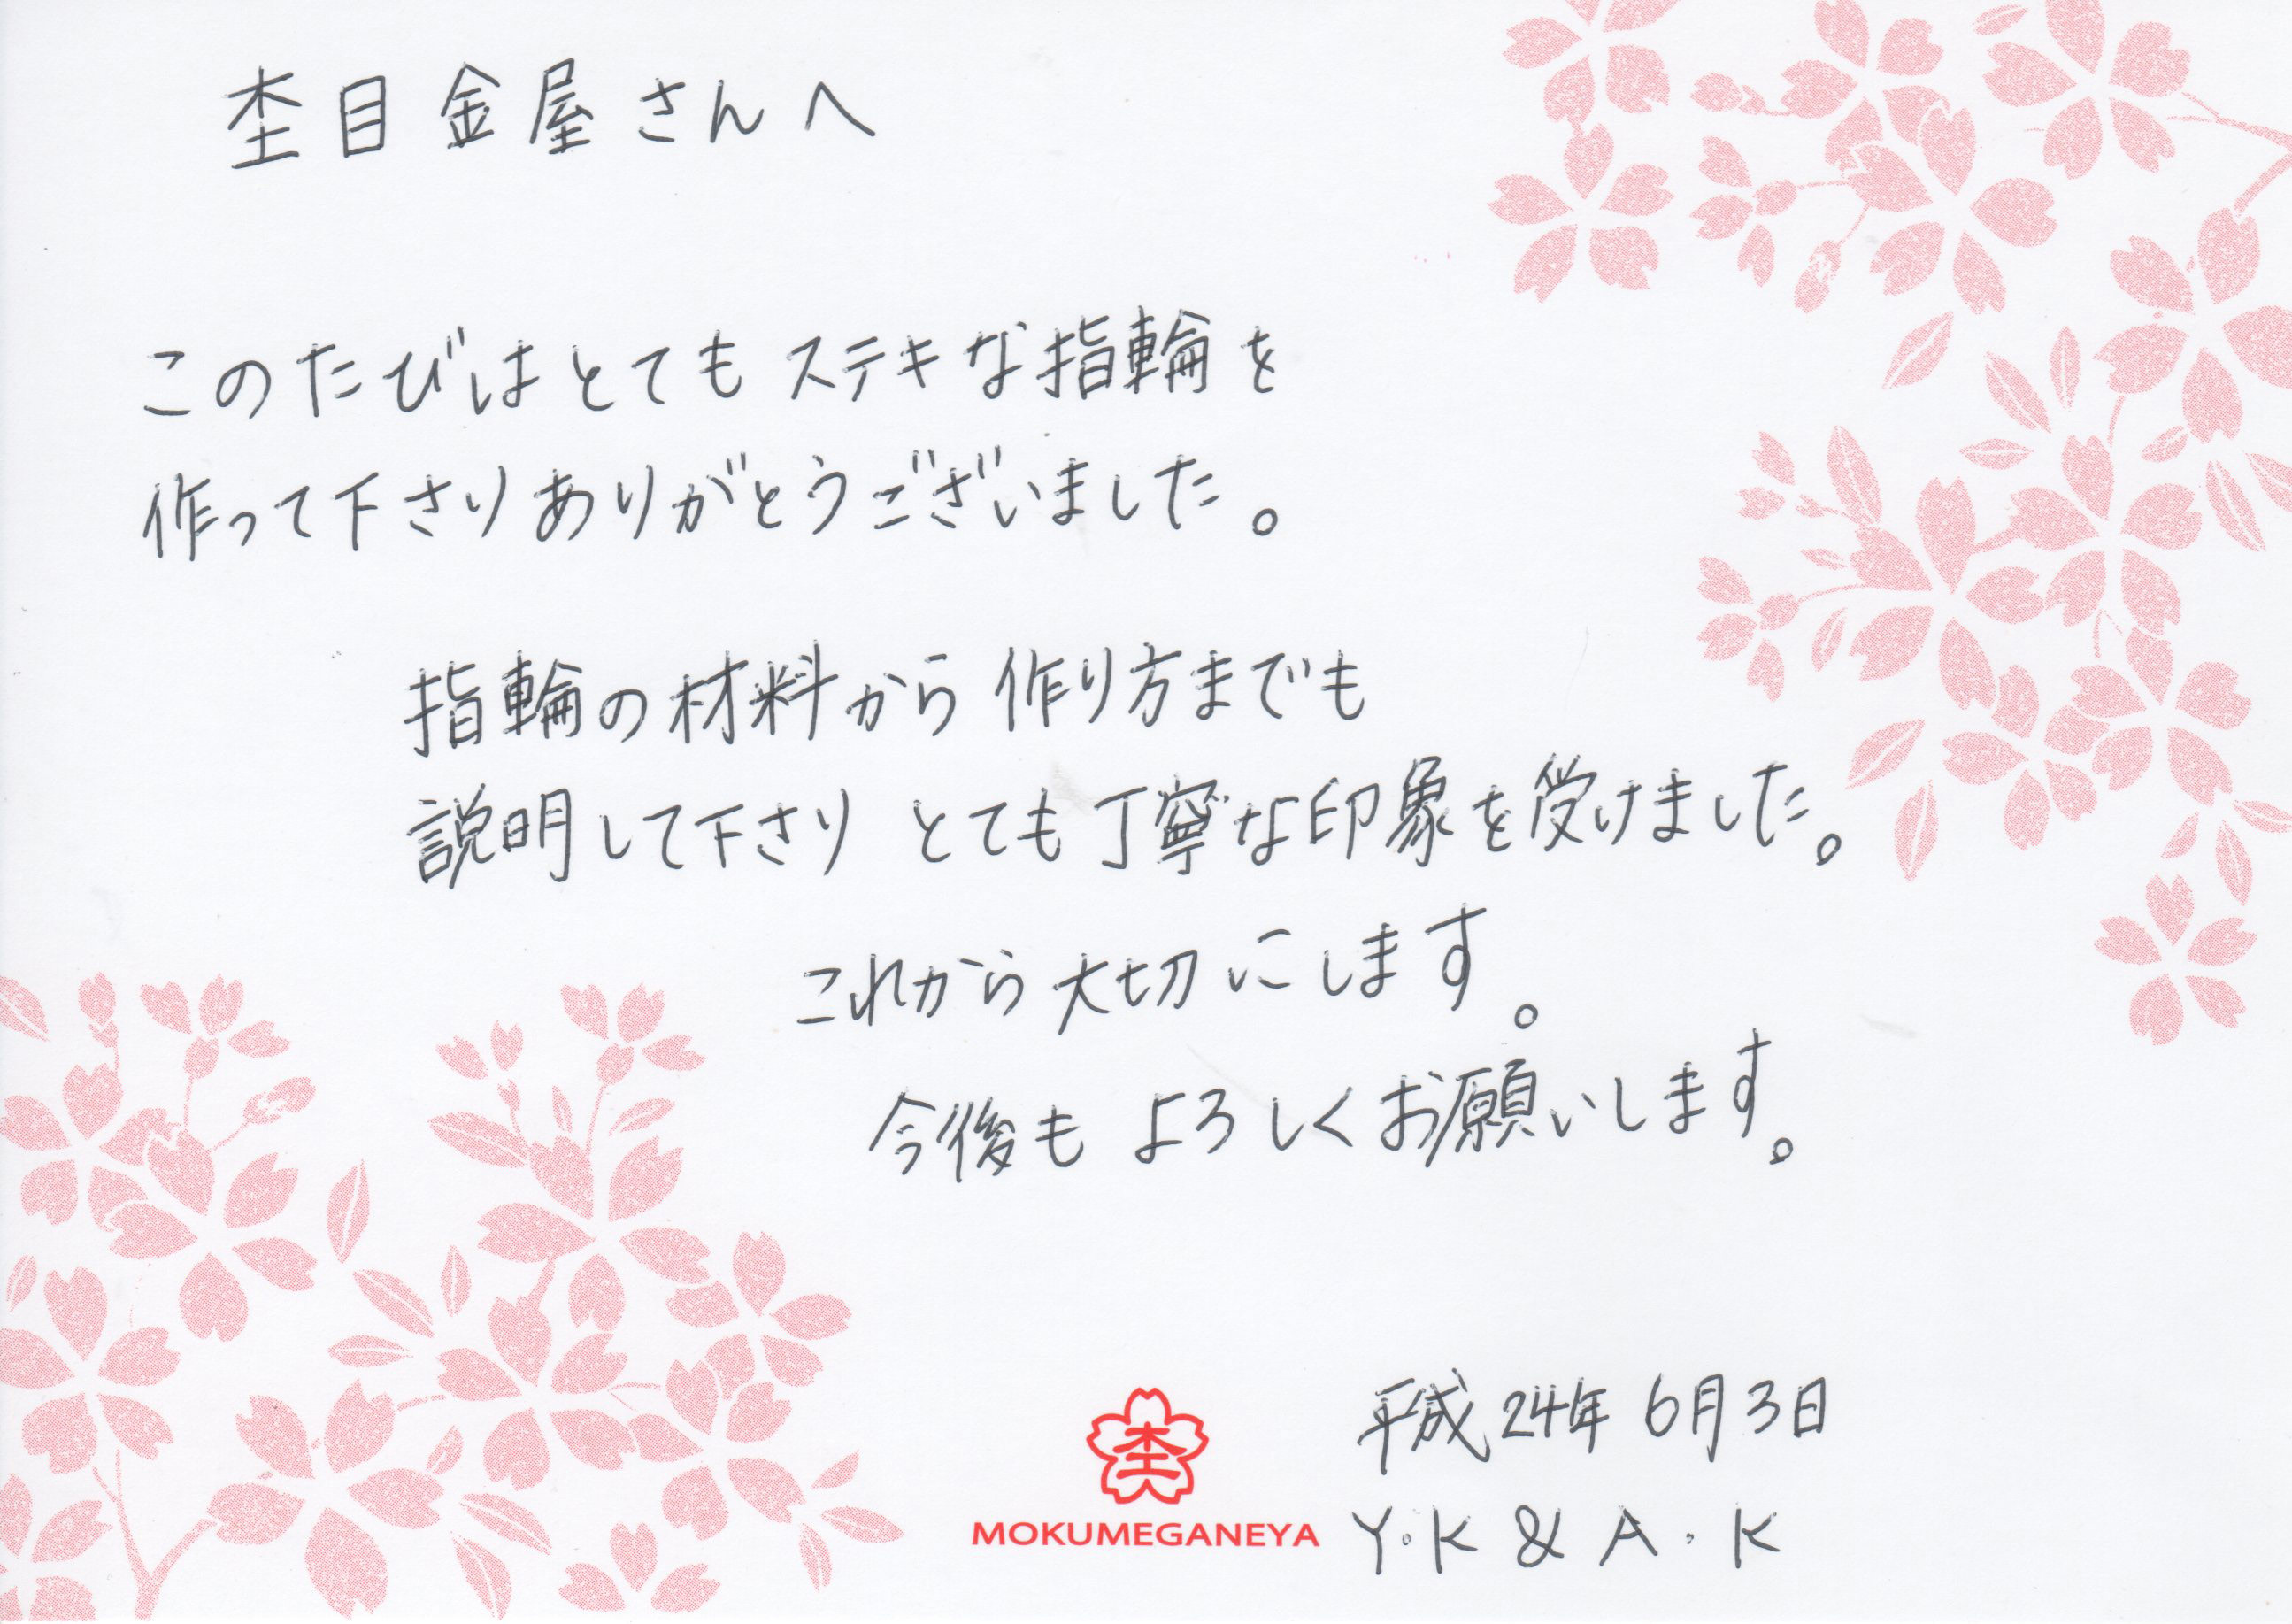 杢目金屋さんへ
このたびはとてもステキな指輪を
作って下さりありがとうございました。
指輪の材料から作り方までも
説明して下さり とても丁寧な印象を受けました。
これから大切にします。
今後も よろしくお願いします。
平成24年 6月3日
杢
MOKUMEGANEYA
Y.K & A.K